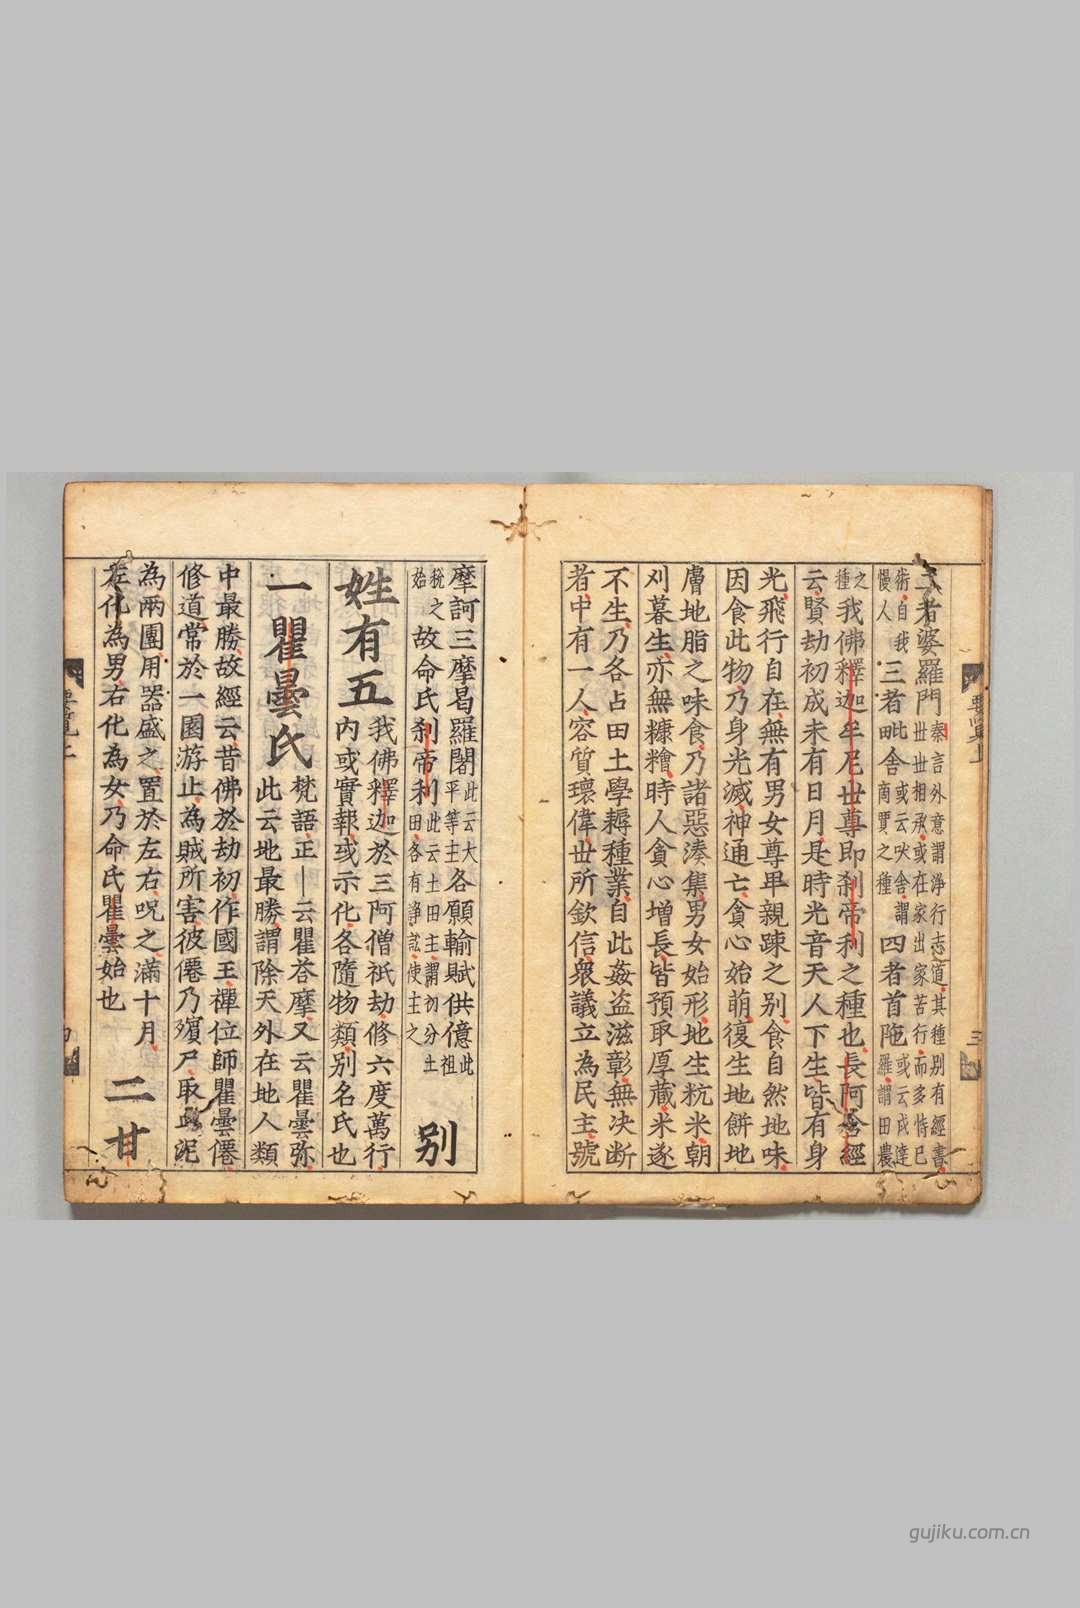 二者婆羅門秦言外意謂淨行志道其種別有經書
世世相承或在家出家苦行而多恃己
術自我
慢人三者毗舍或云吠舍謂
商賈之種四者首陁或云戍達
羅謂田農
之
種我佛釋迦牟尼世尊即剎帝利之種也長阿含經
云賢劫初成未有日月是時光音天人下生皆有身
光飛行自在無有男女尊卑親踈之別食自然地味
因食此物乃身光滅神通亡貪心始萌復生地餅地
膚地脂之味食乃諸惡湊集男女始形地生秔米朝
刈暮生亦無糠糩時人貪心增長皆預取厚藏米遂
不生乃各占田土學耨種業自此姦盗滋彰無决断
者中有一人容質瓌偉世所欽信衆議立為民主號
摩訶三摩曷羅闍此云大
平等主各願輸賦供億此
祖
税之
始故命氏剎帝利此云土田主謂初分土
田各有諍訟使主之 別
姓有五我佛釋迦於三阿僧祇劫修六度萬行
內或實報或示化各隨物類別名氏也
一瞿曇氏梵語正一云瞿荅摩又云瞿曇弥
此云地最勝謂除天外在地人類
中最勝故經云昔佛於劫初作國王禪位師瞿曇僊
修道常於一園游止為賊所害彼僊乃殯尸取血泥
為兩團用器盛之置於左右呪之滿十月 二
左化為男右化為女乃命氏瞿曇始也 甘
要覽上
三
要覽上
四
gujiku.com.cn